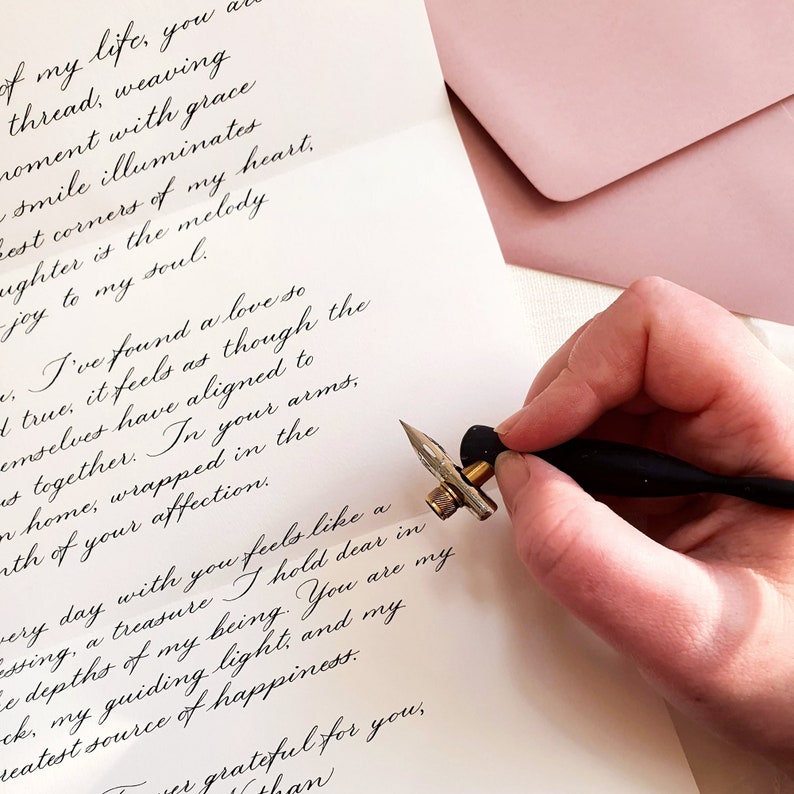 of my life, you are
thread, weaving
moment with grace
smile illuminates
corners of my heart,
is the melody
joy to my soul.
I've found a love so
true, it feels as though the
have aligned to
us together. In your arms,
home, wrapped in the
of your affection.
every day with you feels like a
a treasure I hold dear in
depths of my being. You are my
my guiding light, and my
greatest source of happiness.
grateful for you,
Nathan